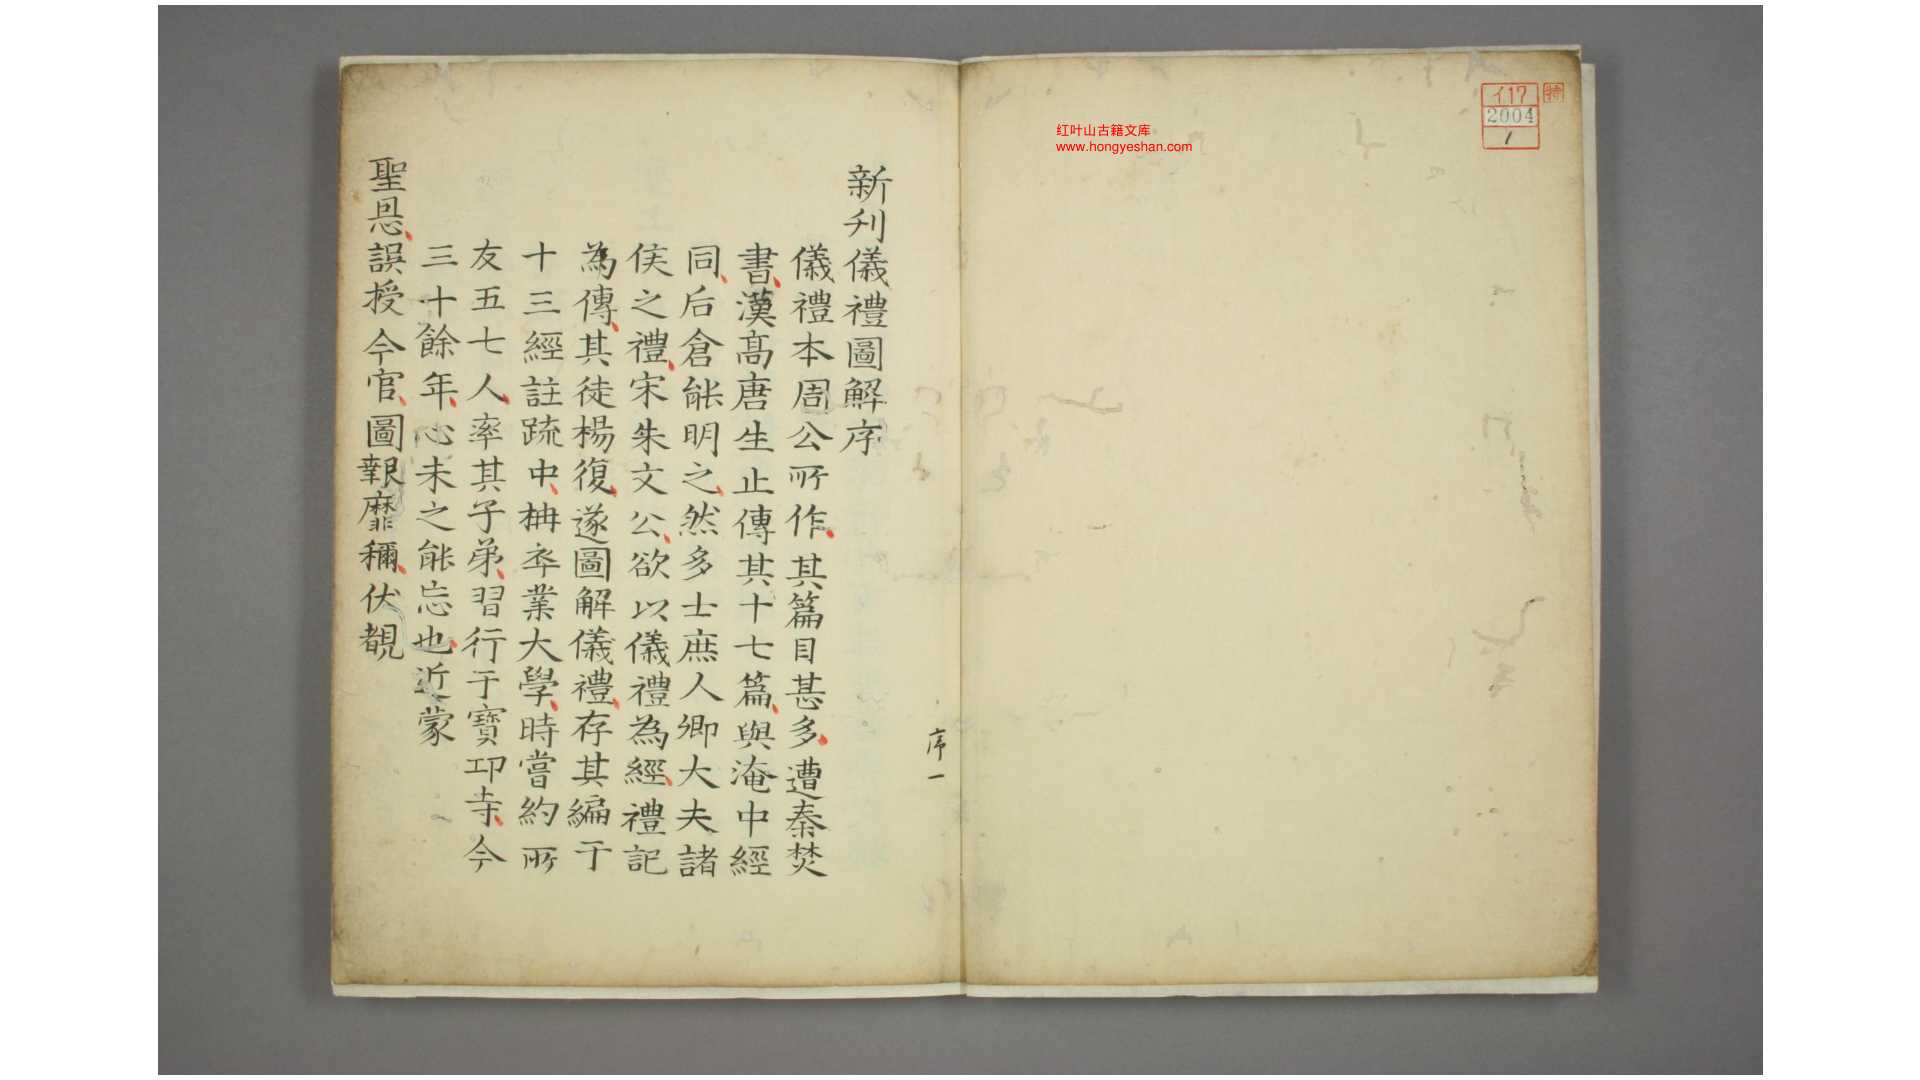 イ17
2004
1
红叶山古籍文库
www.hongyeshan.com
序一
新刋儀禮圖解序
儀禮本周公所作其篇目甚多遭秦焚
書漢髙唐生止傳其十七篇與淹中經
同后倉能明之然多士庶人卿大夫諸
侯之禮宋朱文公欲以儀禮為經禮記
為傳其徒楊復遂圖解儀禮存其編于
十三經註䟽中枏卒業大學時嘗約所
友五七人率其子弟習行于寳卭寺今
三十餘年心未之能忘也近蒙
聖恩誤授今官圖報靡稱伏覩